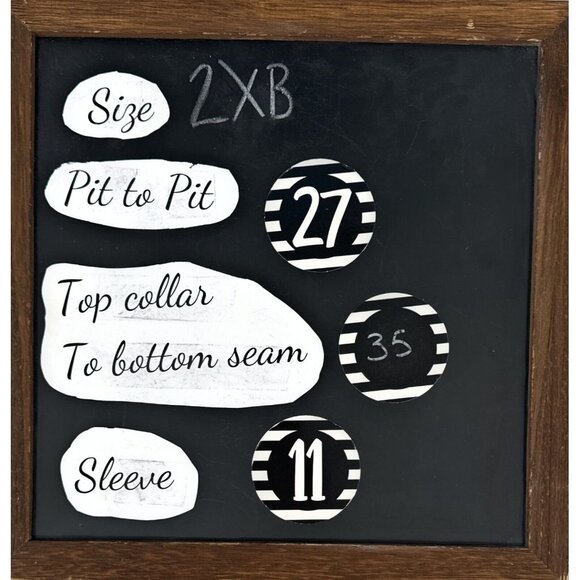 Size 2XB
Pit to Pit 27
Top collar
To bottom seam 35
Sleeve 11